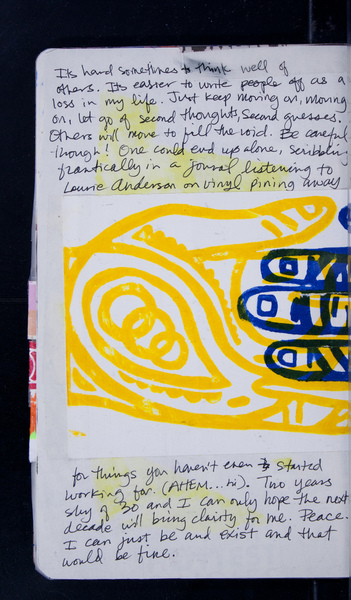 Its hard sometimes to think well of
others. Its easier to write people off as a
loss in my life. Just keep moving on, moving
on, let go of second thoughts, second guesses.
Others will move to fill the void. Be careful
though! One could end up alone, scribbling
frantically in a journal listening to
Laurie Anderson on vinyl pining away
for things you haven't even started
working for. (AHEM... hi). Two years
shy of 30 and I can only hope the next
decade will bring clarity for me. Peace.
I can just be and exist and that
would be fine.